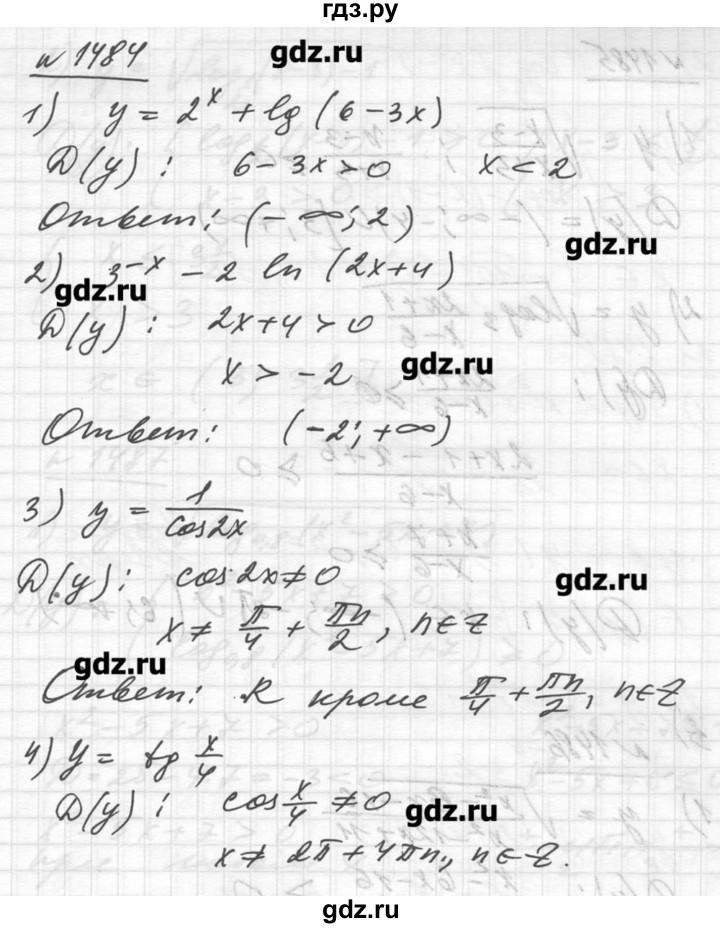 гдз.ру
№ 1484
gdz.ru
1) y = 2^x + lg (6 - 3x)
D(y) : 6 - 3x > 0 x < 2
Ответ: (- ∞; 2)
gdz.ru
2) 3^{-x} - 2 ln (2x+4)
gdz.ru
D(y) : 2x+4 > 0
x > -2
gdz.ru
Ответ: (-2; +∞)
3) y = 1/cos2x
D(y) : cos 2x ≠ 0
gdz.ru
x ≠ π/4 + πn/2, n∈Z
gdz.ru
Ответ: R кроме π/4 + πn/2, n∈Z
4) y = tg x/4
D(y) : cos x/4 ≠ 0
gdz.ru
x ≠ 2π + 4πn, n∈Z.
gdz.ru